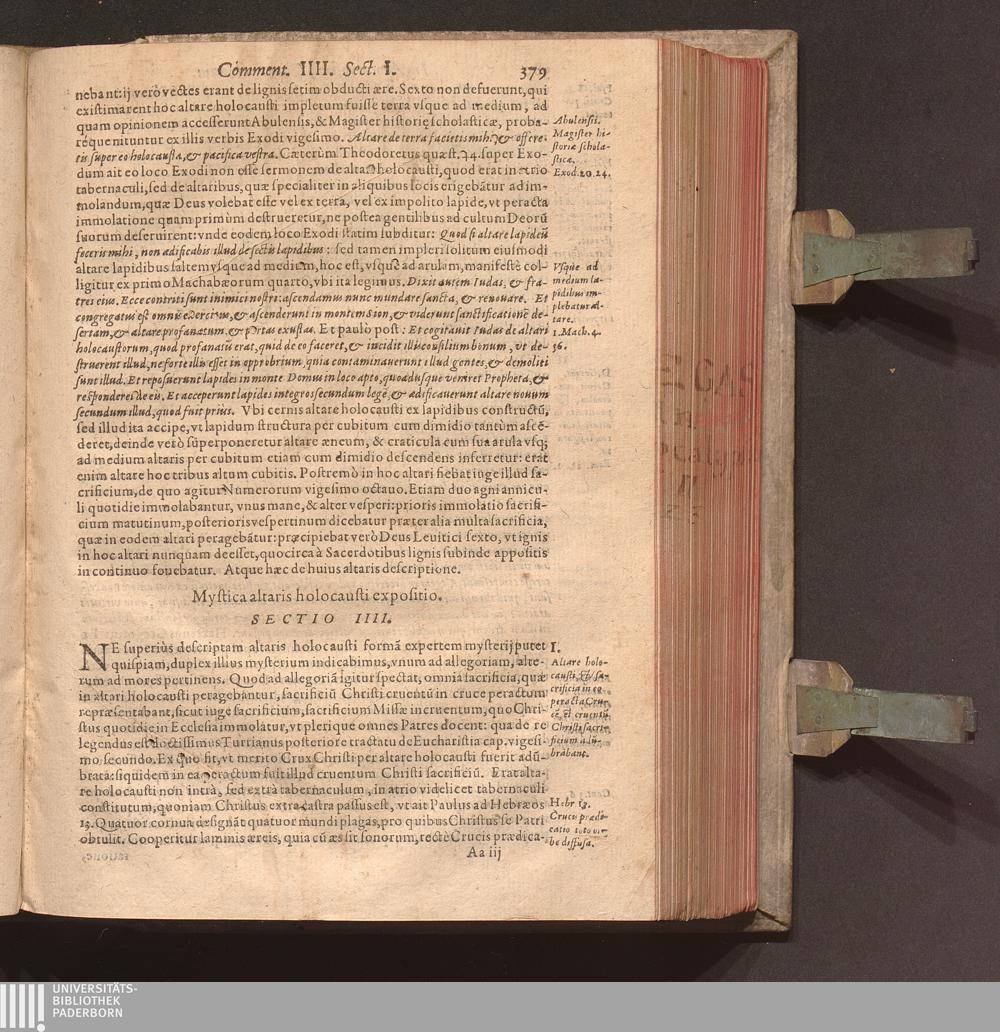 Comment. IIII. Sect. I. 379
nebant: ij verò vectes erant de lignis setim obducti ære. Sexto non defuerunt, qui
existimarent hoc altare holocausti impletum fuisse terra vsque ad medium, ad
quam opinionem accesserunt Abulensis, & Magister historię scholasticæ, proba-
réque nituntur ex illis verbis Exodi vigesimo. Altare de terra facietis mihi, & offere-
tis super eo holocausta, & pacifica vestra. Cæterùm Theodoretus quæst. 34. super Exo-
dum ait eo loco Exodi non esse sermonem de altari holocausti, quod erat in atrio
tabernaculi, sed de altaribus, quæ specialiter in aliquibus locis erigebātur ad im-
molandum, quæ Deus volebat esse vel ex terra, vel ex impolito lapide, vt peracta
immolatione quam primùm destrueretur, ne postea gentilibus ad cultum Deorū
suorum deseruirent: vnde eodem loco Exodi statim subditur: Quod si altare lapideū
feceris mihi, non ædificabis illud de sectis lapidibus: sed tamen impleri solitum eiusmodi
altare lapidibus saltem vsque ad medium, hoc est, vsque ad arulam, manifestè col-
ligitur ex primo Machabæorum quarto, vbi ita legimus. Dixit autem Iudas, & fra-
tres eius. Ecce contriti sunt inimici nostri: ascendamus nunc mundare sancta, & renouare. Et
congregatus est omnis exercitus, & ascenderunt in montem Sion, & viderunt sanctificationē de-
sertam, & altare profanatum, & portas exustas. Et paulò post: Et cogitauit Iudas de altari
holocaustorum, quod profanatū erat, quid de eo faceret, & incidit illis consilium bonum, vt de-
struerent illud, ne forte illis esset in opprobrium, quia contaminauerunt illud gentes, & demoliti
sunt illud. Et reposuerunt lapides in monte Domus in loco apto, quoadusque veniret Propheta, &
responderet de eis. Et acceperunt lapides integros secundum legē, & ædificauerunt altare nouum
secundum illud, quod fuit prius. Vbi cernis altare holocausti ex lapidibus constructū,
sed illud ita accipe, vt lapidum structura per cubitum cum dimidio tantùm ascē-
deret, deinde verò superponeretur altare æneum, & craticula cum sua arula vsq;
ad medium altaris per cubitum etiam cum dimidio descendens inferretur: erat
enim altare hoc tribus altum cubitis. Postremò in hoc altari fiebat iuge illud sa-
crificium, de quo agitur Numerorum vigesimo octauo. Etiam duo agni annicu-
li quotidie immolabantur, vnus mane, & alter vesperi: prioris immolatio sacrifi-
cium matutinum, posterioris vespertinum dicebatur præter alia multa sacrificia,
quæ in eodem altari peragebātur: præcipiebat verò Deus Leuitici sexto, vt ignis
in hoc altari nunquam deesset, quocirca à Sacerdotibus lignis subinde appositis
in continuo fouebatur. Atque hæc de huius altaris descriptione.
Abulensis.
Magister hi-
storiæ schola-
sticæ.
Exod. 20. 24.
Vsque ad
medium la-
pidibus im-
plebatur al-
tare.
1. Mach. 4.
36.
Mystica altaris holocausti expositio.
SECTIO IIII.
NE superiùs descriptam altaris holocausti formā expertem mysterij putet
quispiam, duplex illius mysterium indicabimus, vnum ad allegoriam, alte-
rum ad mores pertinens. Quod ad allegoriā igitur spectat, omnia sacrificia, quæ
in altari holocausti peragebantur, sacrificiū Christi cruentū in cruce peractum
repræsentabant, sicut iuge sacrificium, sacrificium Missæ incruentum, quo Chri-
stus quotidie in Ecclesia immolatur, vt plerique omnes Patres docent: qua de re
legendus est doctissimus Turrianus posteriore tractatu de Eucharistia cap. vigesi-
mo secundo. Ex quo fit, vt merito Crux Christi per altare holocausti fuerit adū-
brata: siquidem in ea peractum fuit illud cruentum Christi sacrificiū. Erat alta-
re holocausti non intrà, sed extrà tabernaculum, in atrio videlicet tabernaculi
constitutum, quoniam Christus extra castra passus est, vt ait Paulus ad Hebræos
13. Quatuor cornua designāt quatuor mundi plagas, pro quibus Christus se Patri
obtulit. Cooperitur laminis æreis, quia cū æs sit sonorum, rectè Crucis prædica-
I.
Altare holo-
causti, & sa-
crificia in eo
peracta Cru-
cē, et cruentū
Christi sacri-
ficium adū-
brābant.
Hebr. 13.
Crucis prædi-
catio toto or-
be diffusa.
Aa iij
UNIVERSITÄTS-
BIBLIOTHEK
PADERBORN